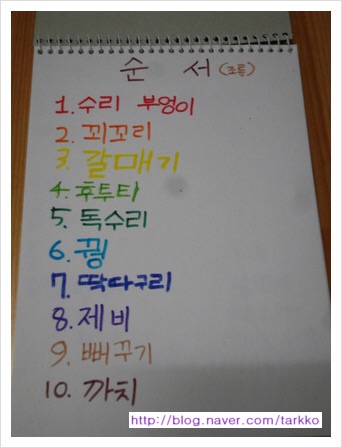 순 서 (조류)
1. 수리 부엉이
2. 꾀꼬리
3. 갈매기
4. 후투티
5. 독수리
6. 꿩
7. 딱다구리
8. 제비
9. 뻐꾸기
10. 까치
http://blog.naver.com/tarkko